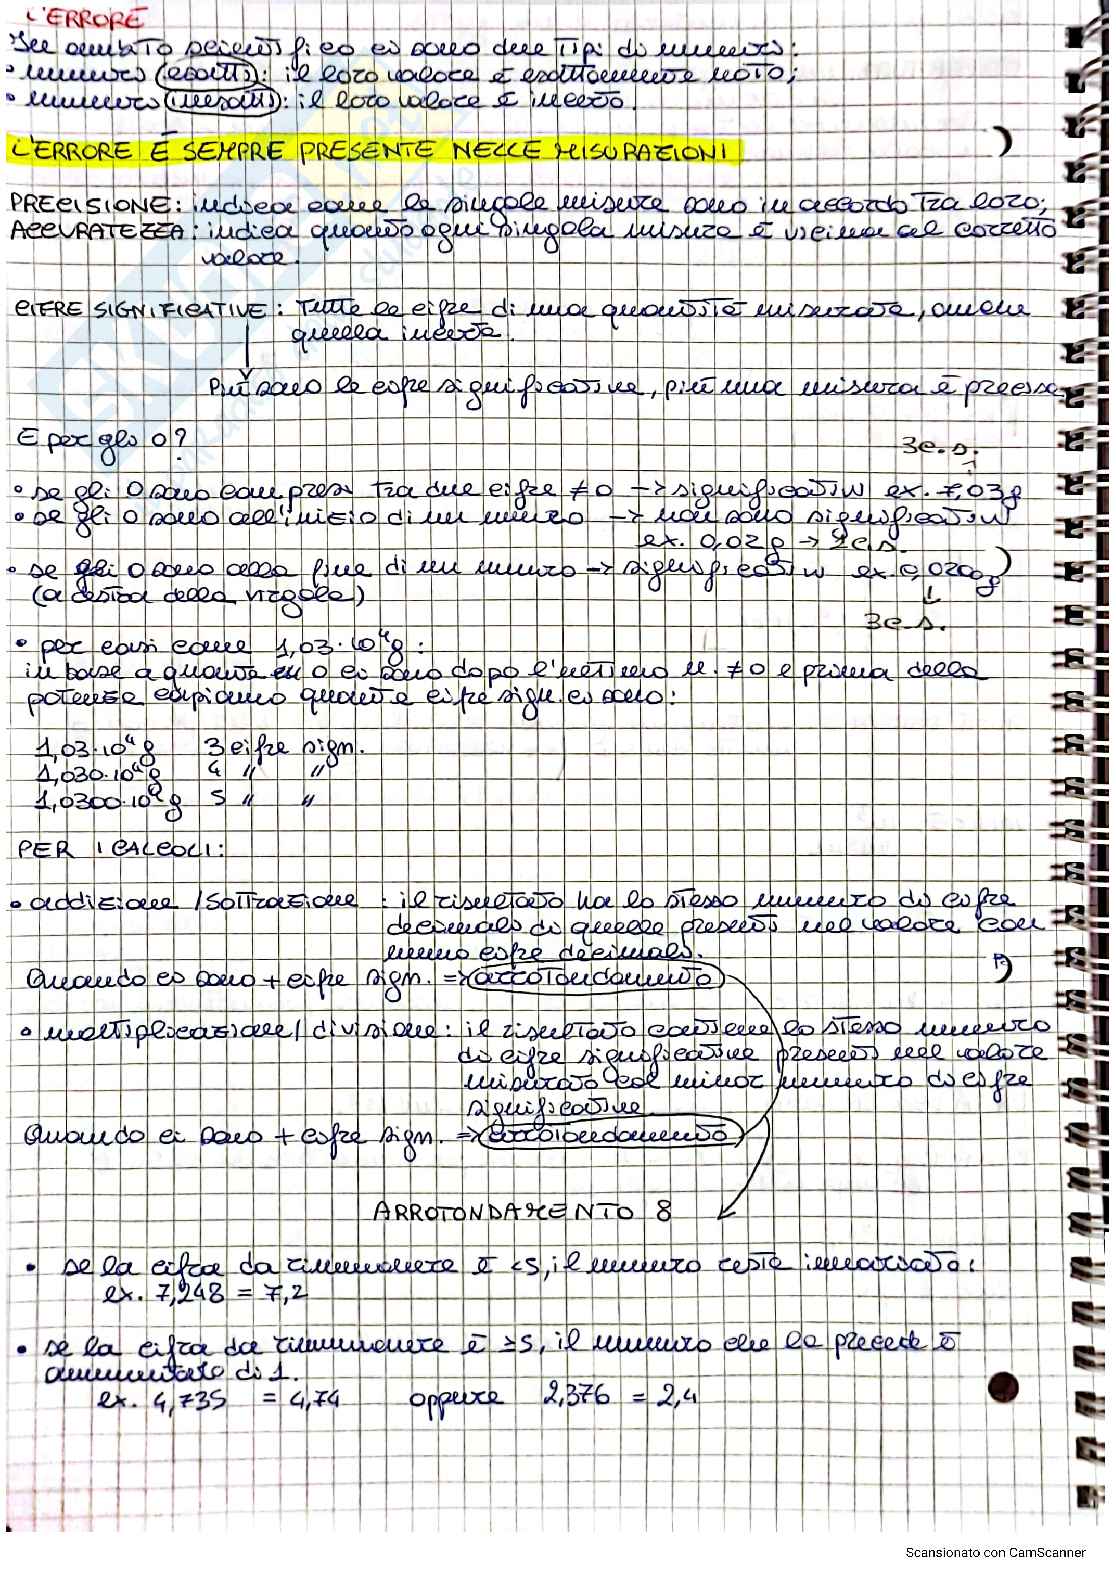 L'ERRORE
In ambito scientifico ci sono due tipi di numeri:
• numeri esatti: il loro valore è esattamente noto;
• numeri inesatti: il loro valore è incerto.
L'ERRORE È SEMPRE PRESENTE NELLE MISURAZIONI
PRECISIONE: indica come le singole misure sono in accordo tra loro;
ACCURATEZZA: indica quanto ogni singola misura è vicina al corretto
valore.
CIFRE SIGNIFICATIVE: Tutte le cifre di una quantità misurata, anche
quella incerta.
Più sono le cifre significative, più una misura è precisa
E per gli 0?
3 c.s.
• se gli 0 sono compresi tra due cifre ≠0 → significativi ex. 7,03g
• se gli 0 sono all'inizio di un numero → non sono significativi
ex. 0,02g → 1 c.s.
• se gli 0 sono alla fine di un numero → significativi ex 0,0200g
(a destra della virgola)
3 c.s.
• per casi come 1,03·10⁴g:
in base a quanti 0 ci sono dopo l'ultimo n. ≠0 e prima della
potenza capiamo quante cifre sign. ci sono:
1,03·10⁴g 3 cifre sign.
1,030·10⁴g 4 " "
1,0300·10⁴g 5 " "
PER I CALCOLI:
• addizione/sottrazione: il risultato ha lo stesso numero di cifre
decimali di quelle presenti nel valore con
meno cifre decimali.
Quando ci sono + cifre sign. ⇒ arrotondamento
• moltiplicazione/divisione: il risultato contiene lo stesso numero
di cifre significative presenti nel valore
misurato col minor numero di cifre
significative
Quando ci sono + cifre sign. ⇒ arrotondamento
ARROTONDAMENTO 8
• se la cifra da rimuovere è <5, il numero resta invariato:
ex. 7,248 = 7,2
• se la cifra da rimuovere è ≥5, il numero che la precede è
aumentato di 1.
ex. 4,735 = 4,74 oppure 2,376 = 2,4
Scansionato con CamScanner